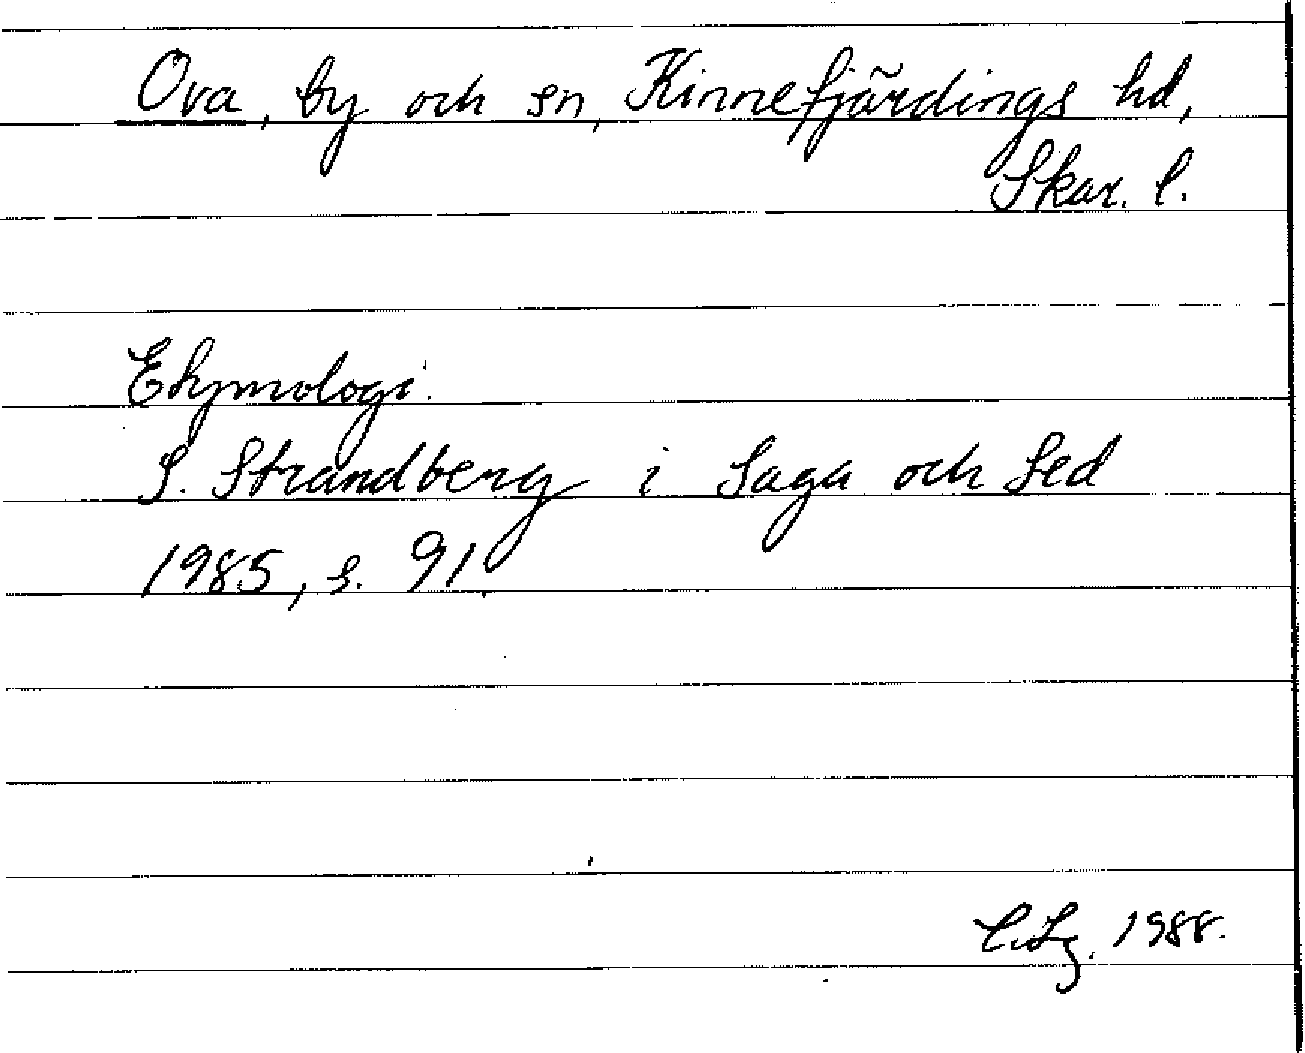 Ova, by och sn, Kinnefjärdings hd,
Skar. l.
Etymologi.
S. Strandberg i Saga och Sed
1985, s. 91.
1988.